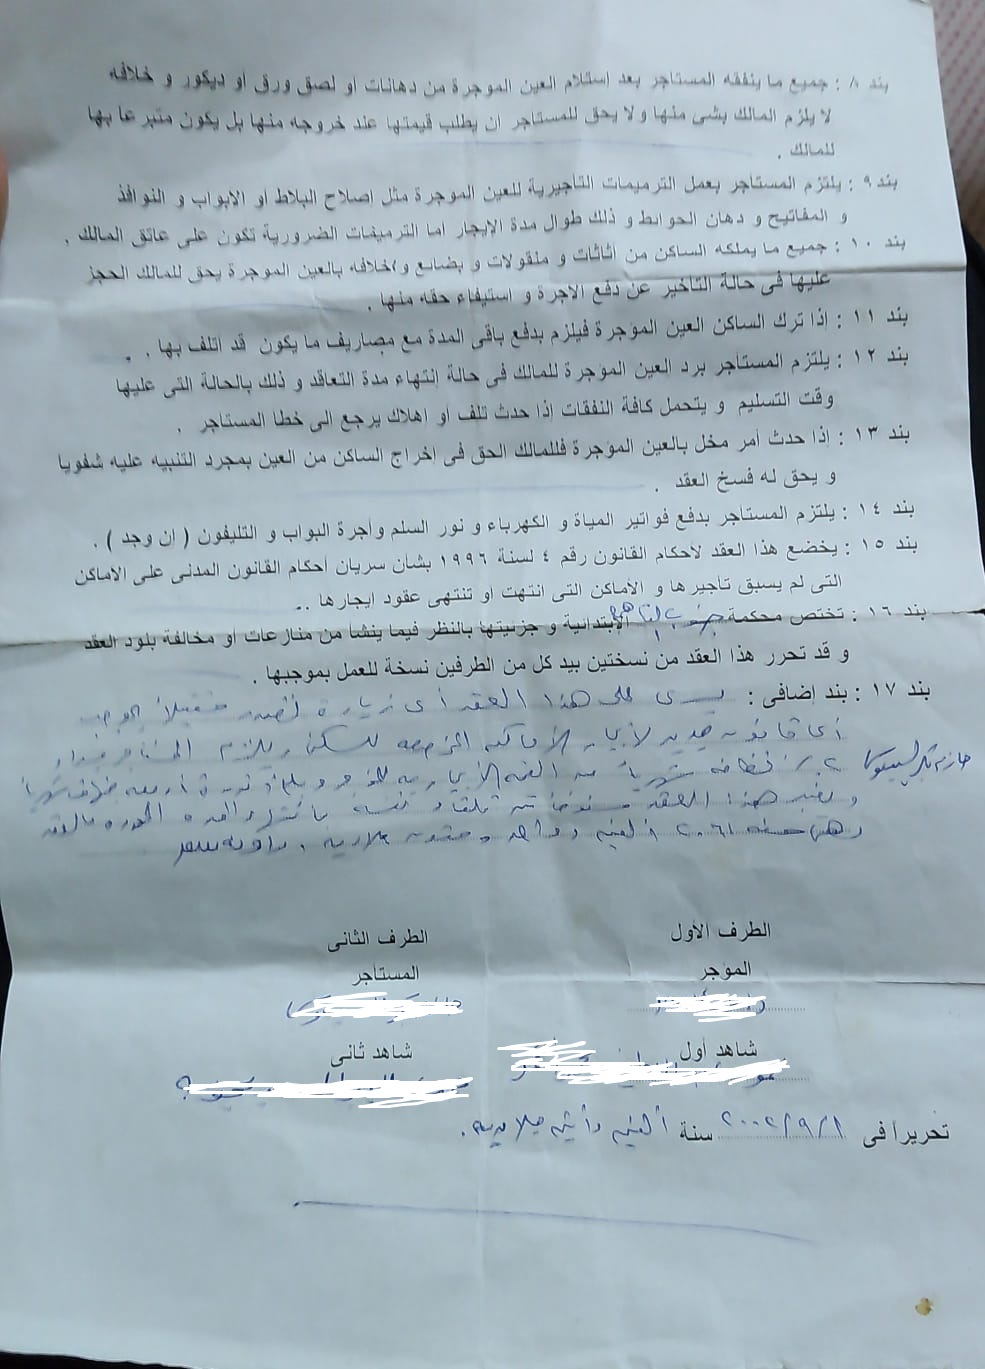 بند ٨ : جميع ما ينفقه المستأجر بعد إستلام العين الموجرة من دهانات او لصق ورق او ديكور و خلافه
لا يلزم المالك بشى منها ولا يحق للمستاجر ان يطلب قيمتها عند خروجه منها بل يكون متبرعا بها
للمالك .
بند ٩ : يلتزم المستأجر بعمل الترميمات التأجيرية للعين الموجرة مثل إصلاح البلاط او الابواب و النوافذ
و المفاتيح و دهان الحوائط و ذلك طوال مدة الإيجار اما الترميمات الضرورية تكون على عاتق المالك .
بند ١٠ : جميع ما يملكه الساكن من اثاثات و منقولات و بضائع و/خلافه بالعين الموجرة يحق للمالك الحجز
عليها فى حالة التأخير عن دفع الاجرة و استيفاء حقه منها .
بند ١١ : إذا ترك الساكن العين الموجرة فيلزم بدفع باقى المدة مع مصاريف ما يكون قد اتلف بها . .
بند ١٢ : يلتزم المستأجر برد العين الموجرة للمالك فى حالة إنتهاء مدة التعاقد و ذلك بالحالة التى عليها
وقت التسليم و يتحمل كافة النفقات إذا حدث تلف او اهلاك يرجع الى خطا المستاجر .
بند ١٣ : إذا حدث أمر مخل بالعين المؤجرة فللمالك الحق فى إخراج الساكن من العين بمجرد التنبيه عليه شفويا
و يحق له فسخ العقد .
بند ١٤ : يلتزم المستأجر بدفع فواتير المياة و الكهرباء و نور السلم وأجرة البواب و التليفون ( ان وجد ) .
بند ١٥ : يخضع هذا العقد لأحكام القانون رقم ٤ لسنة ١٩٩٦ بشان سريان أحكام القانون المدنى على الاماكن
التى لم يسبق تأجيرها و الاماكن التى انتهت او تنتهى عقود ايجارها ..
بند ١٦ : تختص محكمة جنوب القاهرة الإبتدانية و جزئيتها بالنظر فيما ينشا من منازعات او مخالفة بلود العقد
و قد تحرر هذا العقد من نسختين بيد كل من الطرفين نسخة للعمل بموجبها .
بند ١٧ : بند إضافى : يسرى على هذا العقد أى زيارة
أى قانون جديد الأماكن للسكن ويلتزم المستأجر
شهرياً من
ويعتبر هذا العقد مفسوخاً من تلقاء نفسه بالعقد
سنة ٢٠٦١ ألفين وواحد وستون ميلادية .
الطرف الأول
الطرف الثانى
المؤجر
المستأجر
شاهد أول
شاهد ثانى
تحريرا فى ٢٠٠٢/٩/١ سنة ألفين وأثنين ميلادية .